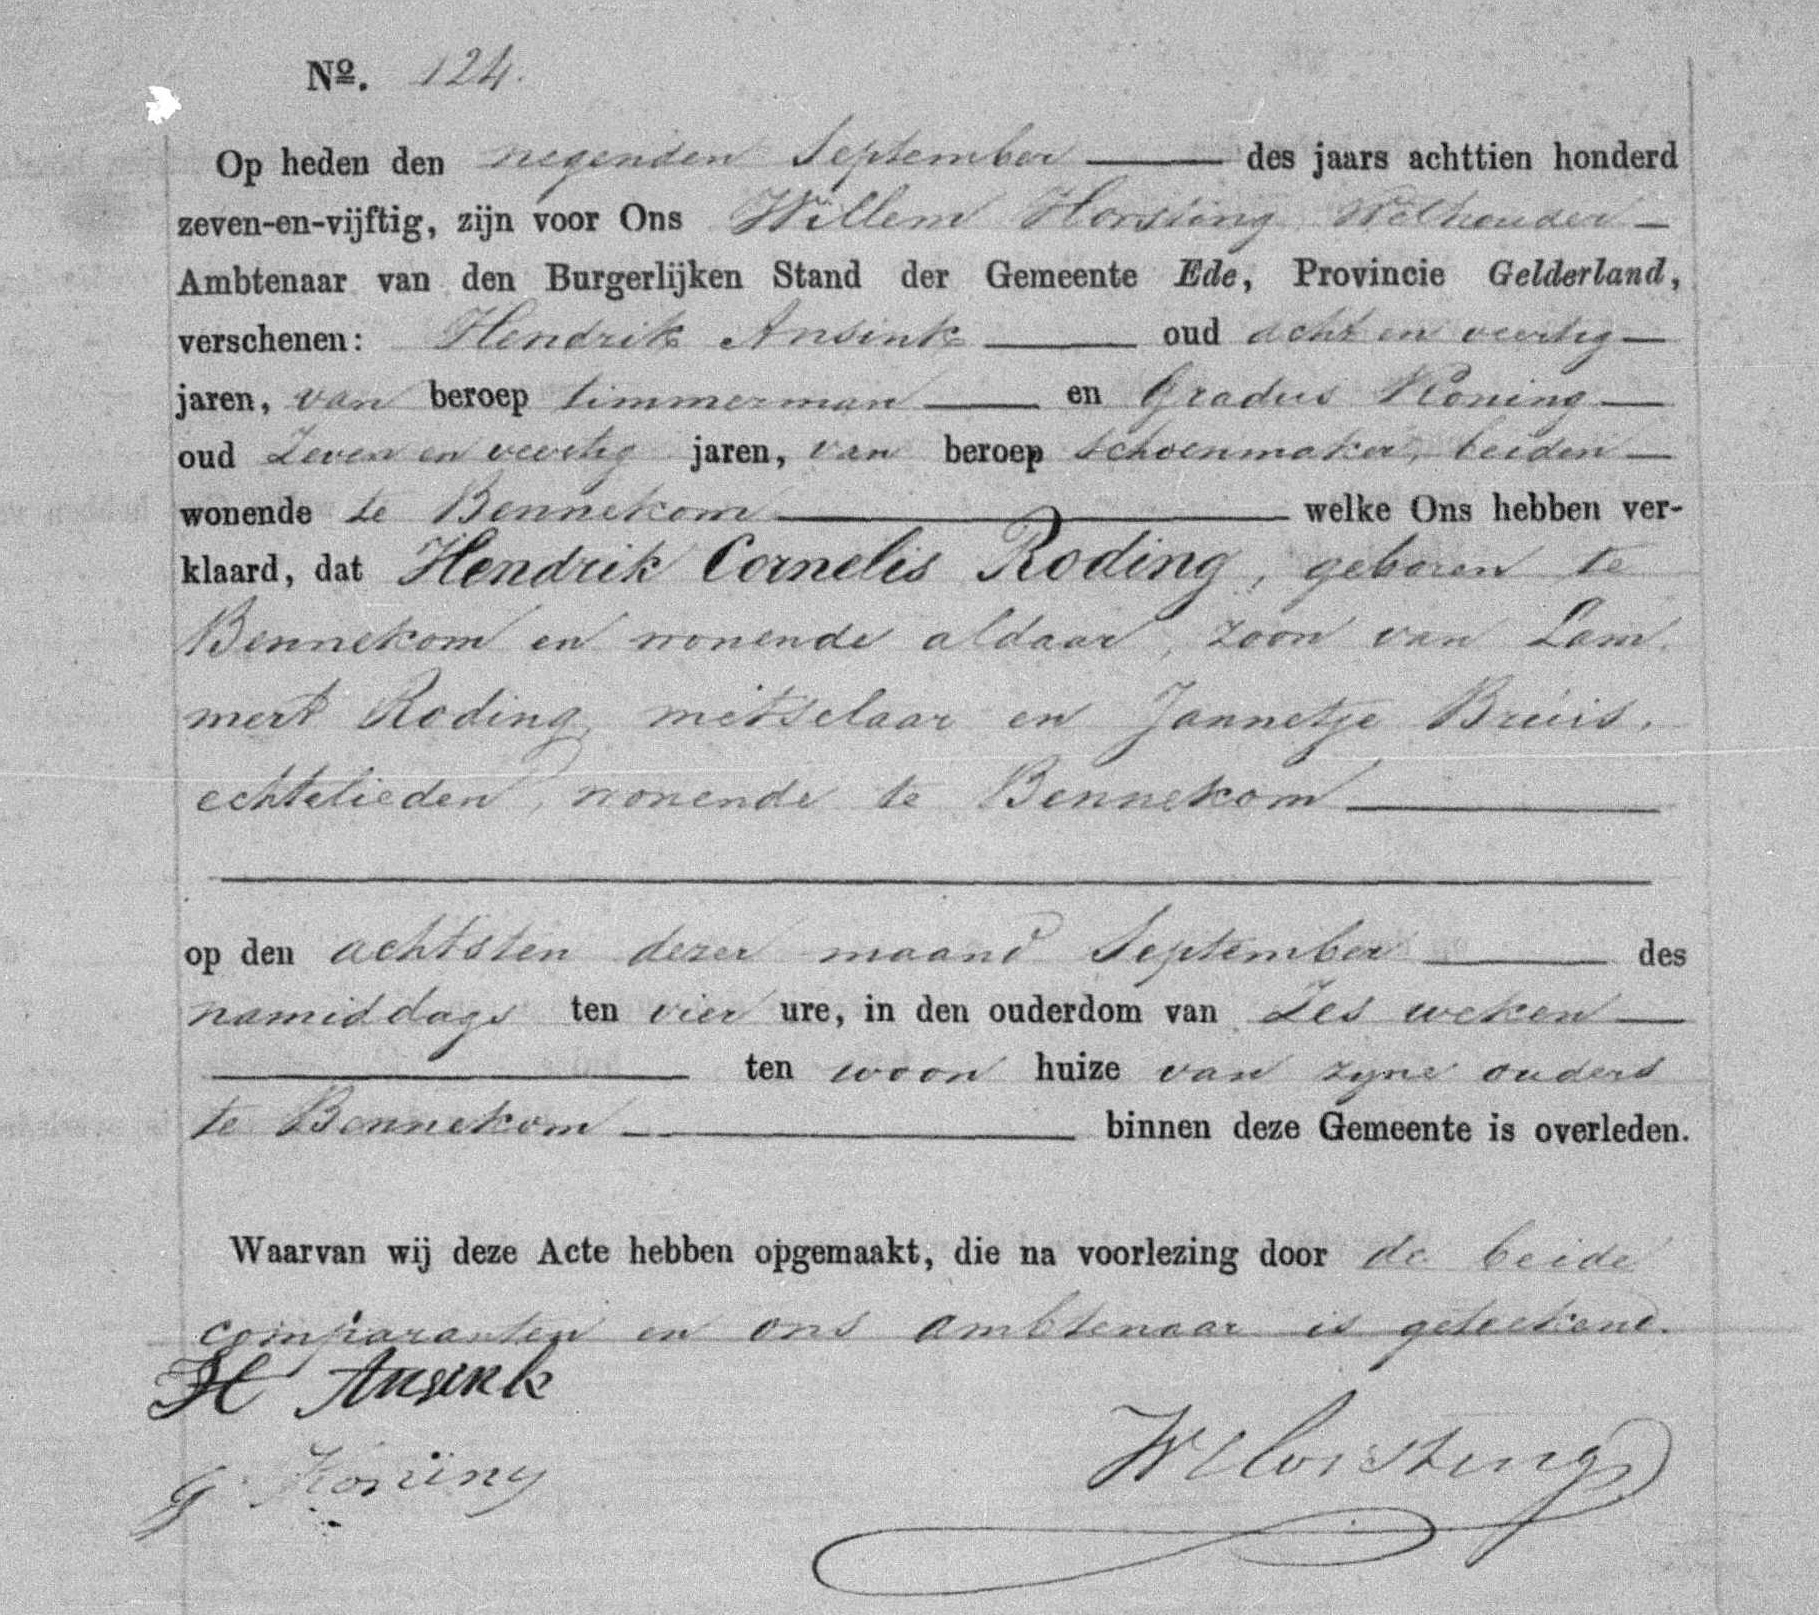 Nº. 124.
Op heden den negenden September des jaars achttien honderd
zeven-en-vijftig, zijn voor Ons Willem Horsting Wethouder
Ambtenaar van den Burgerlijken Stand der Gemeente Ede, Provincie Gelderland,
verschenen: Hendrik Ansink oud acht en veertig
jaren, van beroep timmerman en Gradus Koning
oud Zeven en veertig jaren, van beroep schoenmaker, beiden
wonende te Bennekom welke Ons hebben ver-
klaard, dat Hendrik Cornelis Roding, geboren te
Bennekom en wonende aldaar, zoon van Lam
mert Roding, metselaar en Jannetje Bruis,
echtelieden, wonende te Bennekom
op den achtsten dezer maand September des
namiddags ten vier ure, in den ouderdom van Zes weken
ten woon huize van zyne ouders
te Bennekom binnen deze Gemeente is overleden.
Waarvan wij deze Acte hebben opgemaakt, die na voorlezing door de beide
comparanten en ons ambtenaar is geteekend.
H Ansink
G Koning
W Horsting